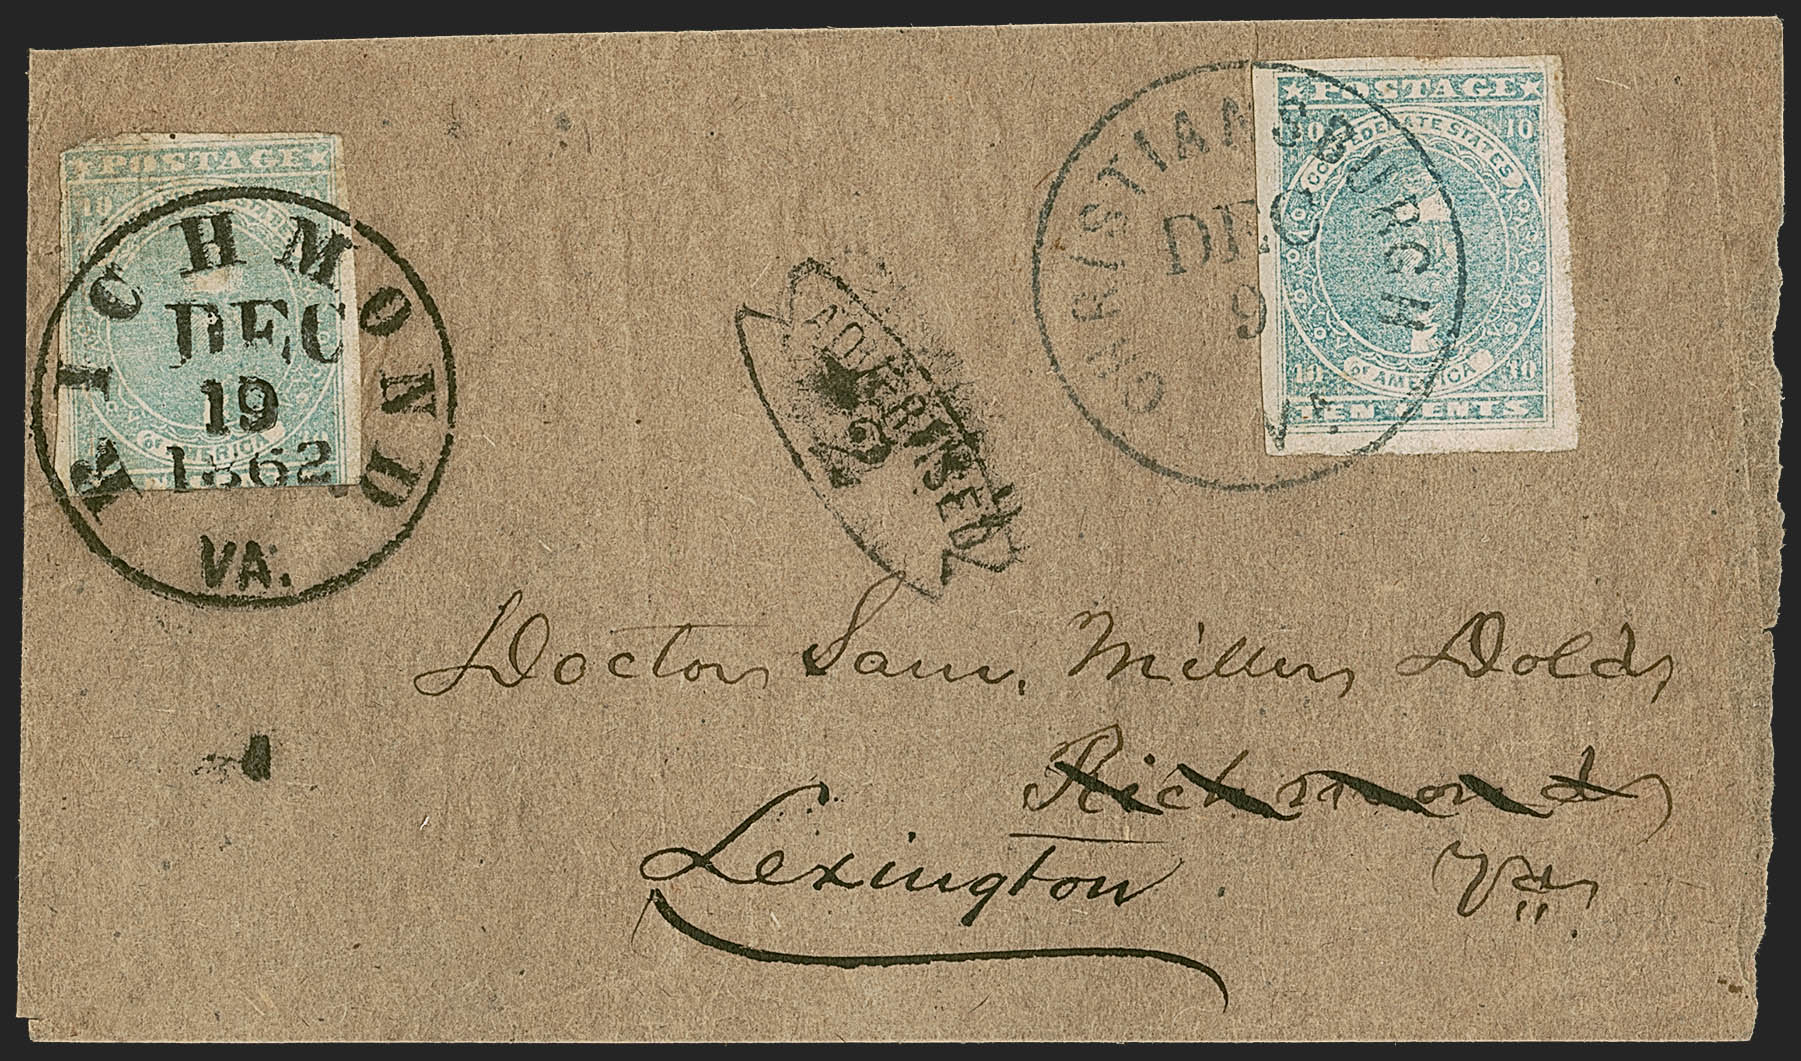 POSTAGE
10
OF AMERICA
RICHMOND
DEC
19
1862
VA.
ADVERTISED
2
CHRISTIANSBURGH
DEC
9
Va.
POSTAGE
10 10
CONFEDERATE STATES
OF AMERICA
10 10
TEN CENTS
Doctor Sam. Miller Dold,
Richmond
Lexington. Va